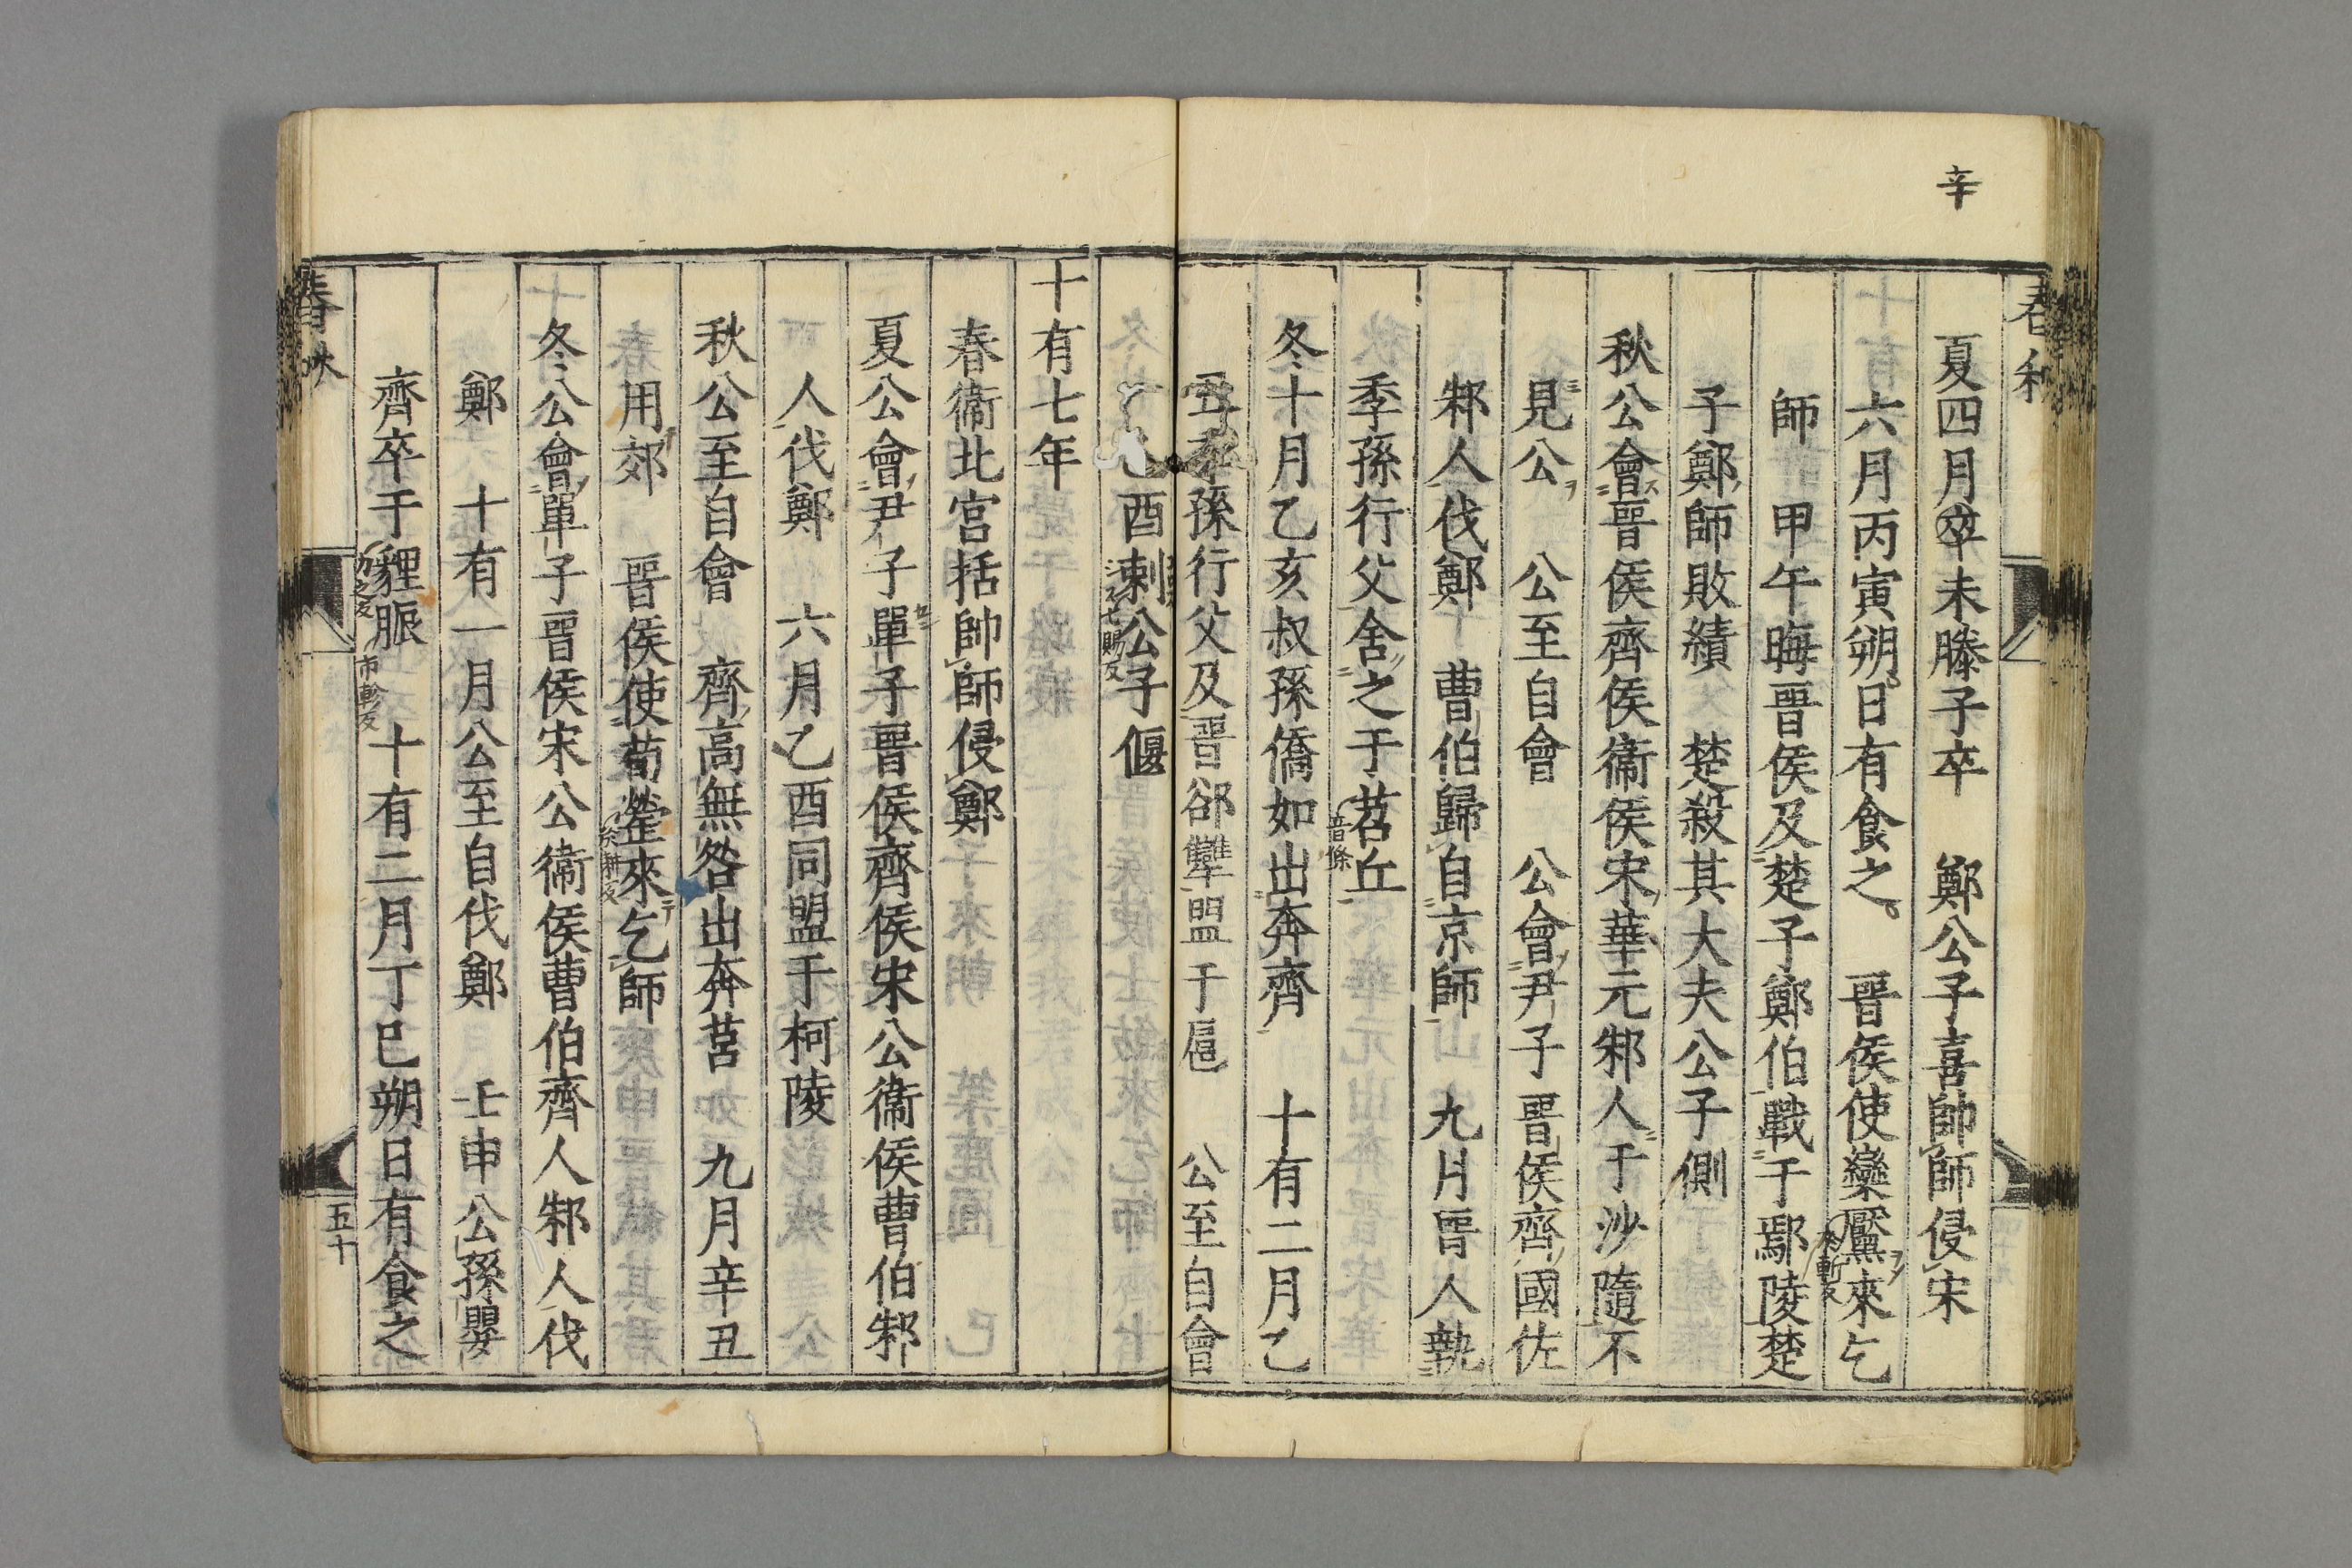 辛
夏四月卒未滕子卒　鄭公子喜帥師侵宋
六月丙寅朔日有食之　晉侯使欒黶來乞
師　甲午晦晉侯及楚子鄭伯戰于鄢陵楚
子鄭師敗績　楚殺其大夫公子側
秋公會晉侯齊侯衞侯宋華元邾人于沙隨不
見公　公至自會　公會尹子晉侯齊國佐
邾人伐鄭　曹伯歸自京師　九月晉人執
季孫行父舍之于苕丘
音條
冬十月乙亥叔孫僑如出奔齊　十有二月乙
丑季孫行父及晉郤犨盟于扈　公至自會
酉刺公子偃
七賜反
十有七年
春衞北宮括帥師侵鄭
夏公會尹子單子晉侯齊侯宋公衞侯曹伯邾
人伐鄭　六月乙酉同盟于柯陵
秋公至自會　齊高無咎出奔莒　九月辛丑
用郊　晉侯使荀罃來乞師
冬公會單子晉侯宋公衞侯曹伯齊人邾人伐
鄭　十有一月公至自伐鄭　壬申公孫嬰
齊卒于貍脤　十有二月丁巳朔日有食之
力之反
市軫反
春秋
五十